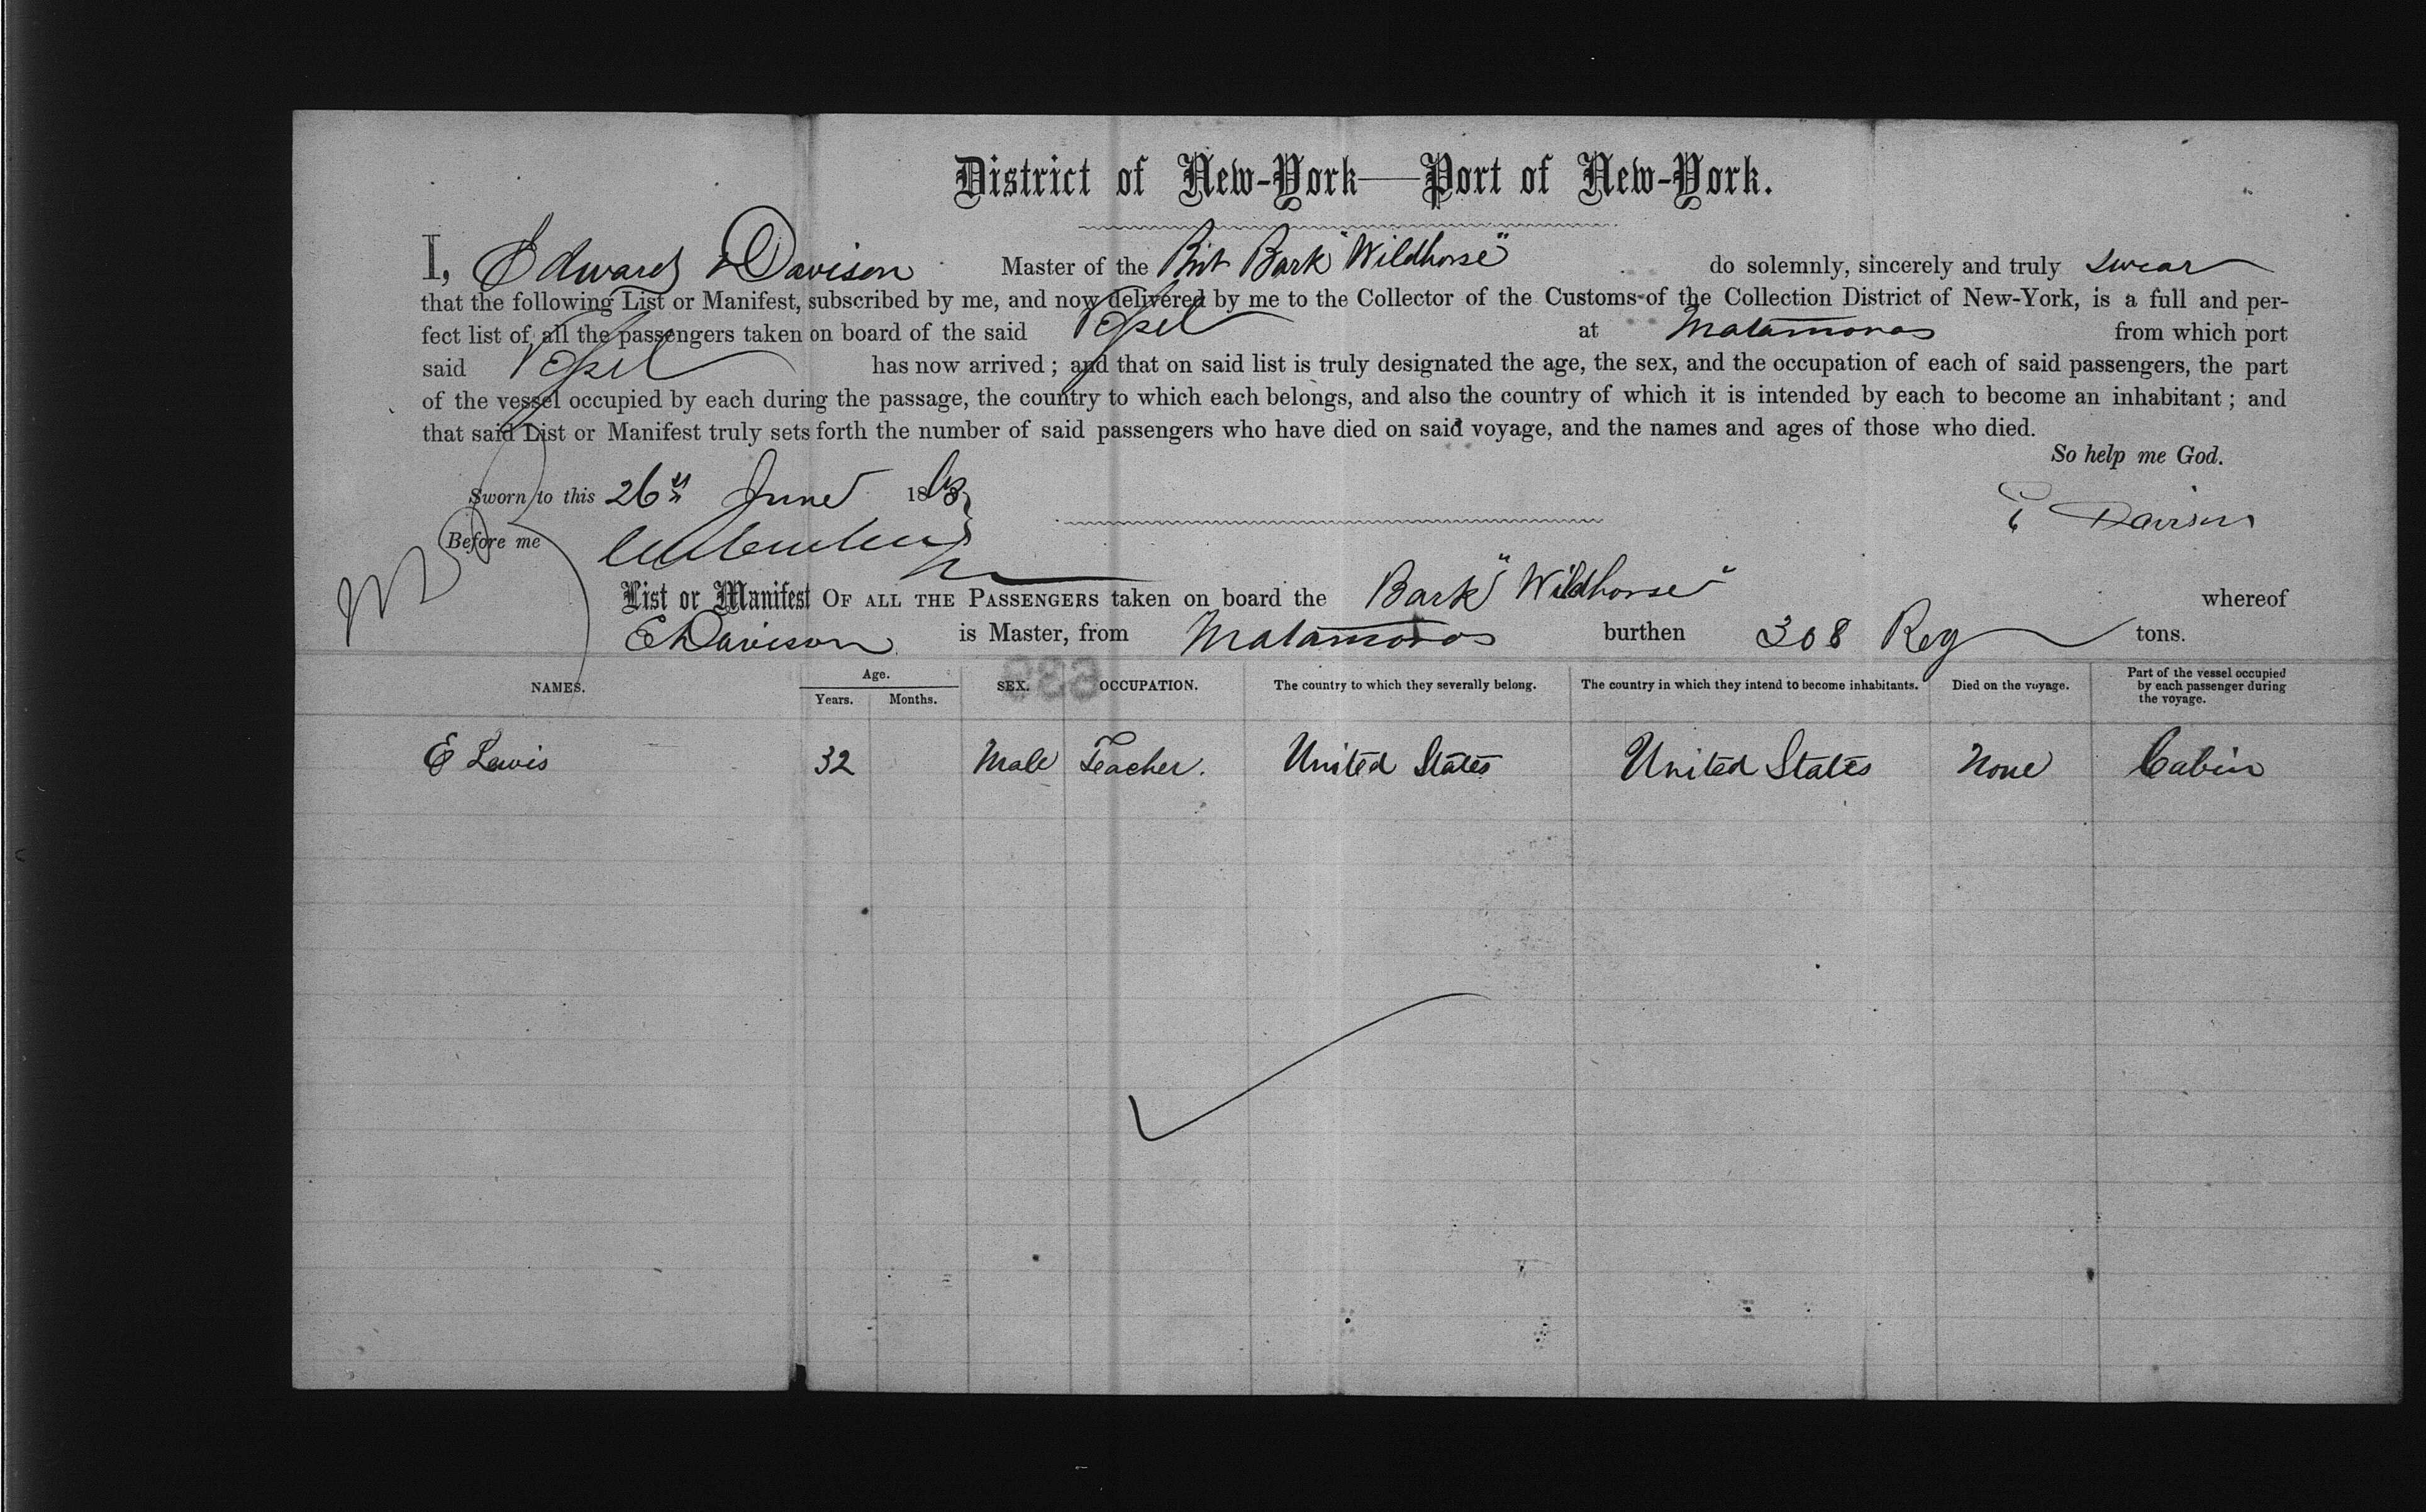 District of New-York—Port of New-York.
I, Edward Davison Master of the Brit Bark "Wildhorse" do solemnly, sincerely and truly swear
that the following List or Manifest, subscribed by me, and now delivered by me to the Collector of the Customs of the Collection District of New-York, is a full and per-
fect list of all the passengers taken on board of the said Vessel at Matamoras from which port
said Vessel has now arrived; and that on said list is truly designated the age, the sex, and the occupation of each of said passengers, the part
of the vessel occupied by each during the passage, the country to which each belongs, and also the country of which it is intended by each to become an inhabitant; and
that said List or Manifest truly sets forth the number of said passengers who have died on said voyage, and the names and ages of those who died.
So help me God.
Sworn to this 26th June 1863
E Davison
Before me
List or Manifest OF ALL THE PASSENGERS taken on board the Bark "Wildhorse" whereof
E Davison is Master, from Matamoros burthen 308 Reg tons.
NAMES. Age. Years. Months. SEX. OCCUPATION. The country to which they severally belong. The country in which they intend to become inhabitants. Died on the voyage. Part of the vessel occupied by each passenger during the voyage.
E Lewis 32 Male Teacher. United States United States None Cabin